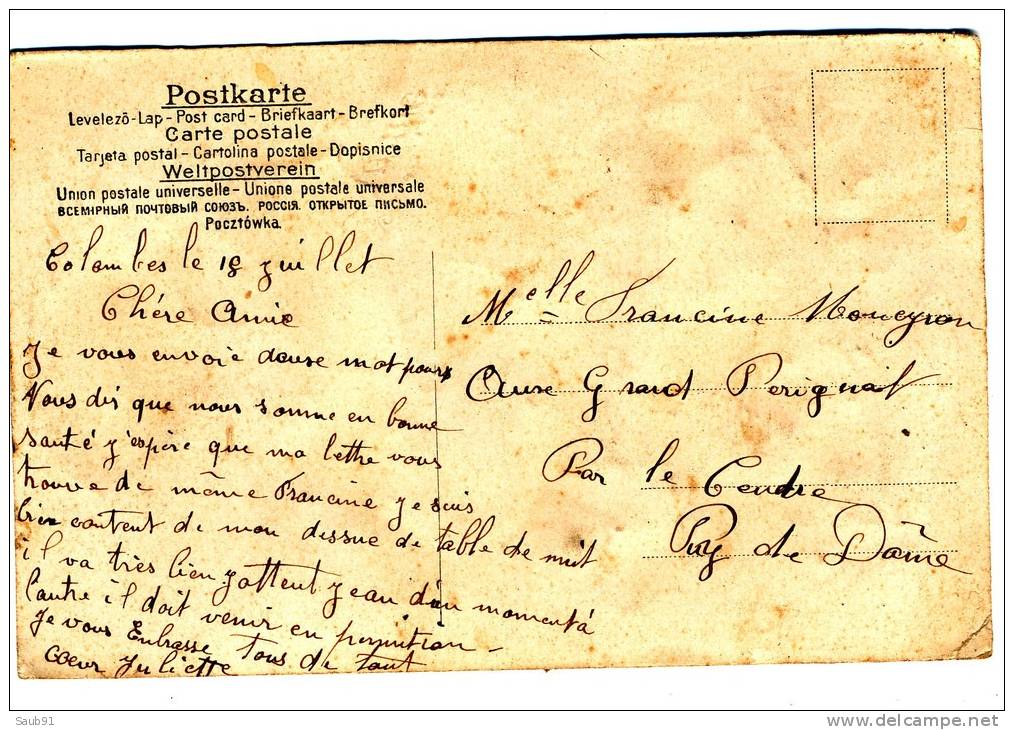 Postkarte
Levelező-Lap - Post card - Briefkaart - Brefkort
Carte postale
Tarjeta postal - Cartolina postale - Dopisnice
Weltpostverein
Union postale universelle - Unione postale universale
ВСЕМІРНЫЙ ПОЧТОВЫЙ СОЮЗЪ. РОССІЯ. ОТКРЫТОЕ ПИСЬМО.
Pocztówka.
Colombes le 18 juillet
Chére Amie
Je vous envoie deuse mot pour
Vous dis que nous somme en bonne
santé j'espère que ma lettre vous
trouve de même Francine je suis
bien content de mon dessue de table de nuit
il va très bien j'attent jean d'un moment à
l'autre il doit venir en permition
Je vous Enbrasse tous de tout
coeur Juliette
Melle Francine Moueyron
Grand Perignat
Par le Cendre
Puy de Dôme
Saub91
www.delcampe.net